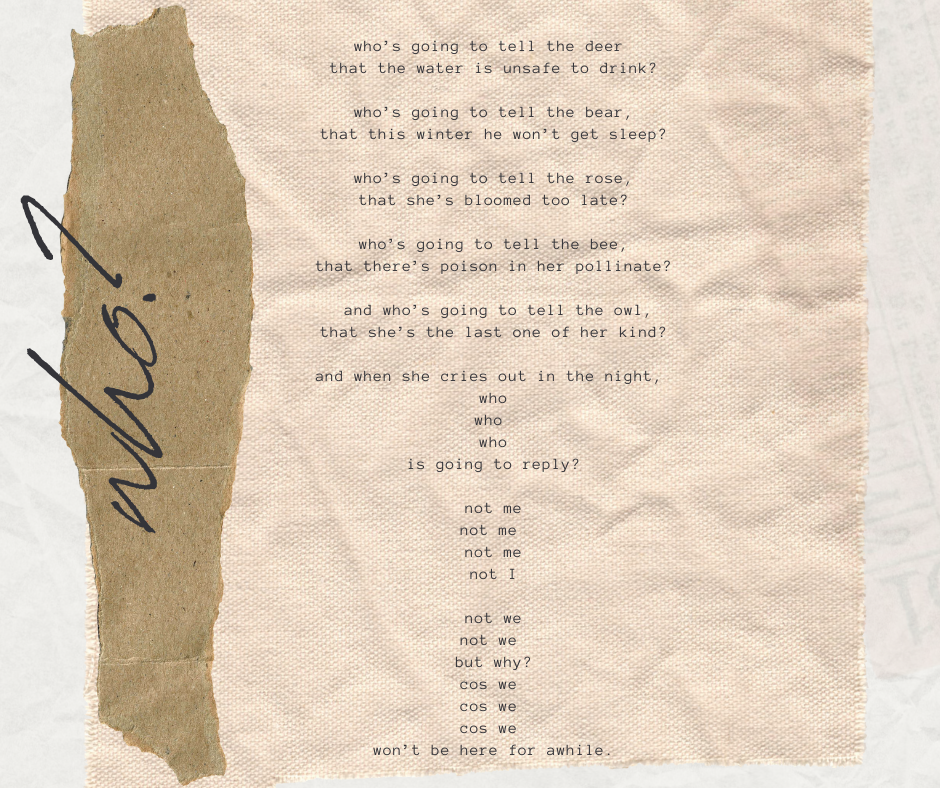 who?
who’s going to tell the deer
that the water is unsafe to drink?
who’s going to tell the bear,
that this winter he won’t get sleep?
who’s going to tell the rose,
that she’s bloomed too late?
who’s going to tell the bee,
that there’s poison in her pollinate?
and who’s going to tell the owl,
that she’s the last one of her kind?
and when she cries out in the night,
who
who
who
is going to reply?
not me
not me
not me
not I
not we
not we
but why?
cos we
cos we
cos we
won’t be here for awhile.